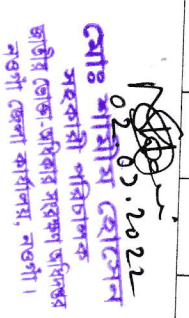 02.03.2022
মোঃ শামীম হোসেন
সহকারী পরিচালক
জাতীয় ভোক্তা-অধিকার সংরক্ষণ অধিদপ্তর
নওগাঁ জেলা কার্যালয়, নওগাঁ।